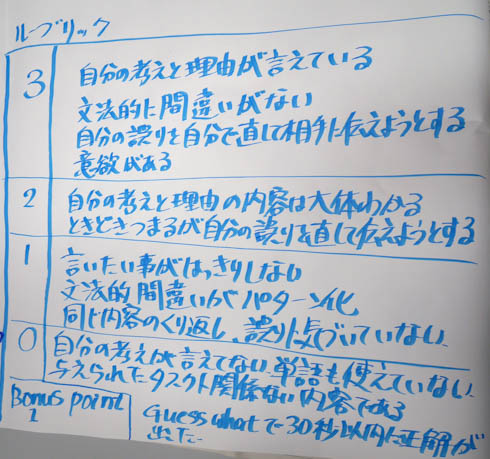 ルーブリック
3
自分の考えと理由が言えている
文法的に間違いがない
自分の誤りを自分で直して相手に伝えようとする
意欲がある
2
自分の考えと理由の内容は大体わかる
ときどきつまるが自分の誤りを直して伝えようとする
1
言いたい事がはっきりしない
文法的間違いがパターン化
同じ内容のくり返し、誤りに気づいていない
0
自分の考えが言えてない、単語も使えていない
与えられたタスクト関係ない内容である
Bonus point
1
Guess whatで30秒以内に正解が
出た